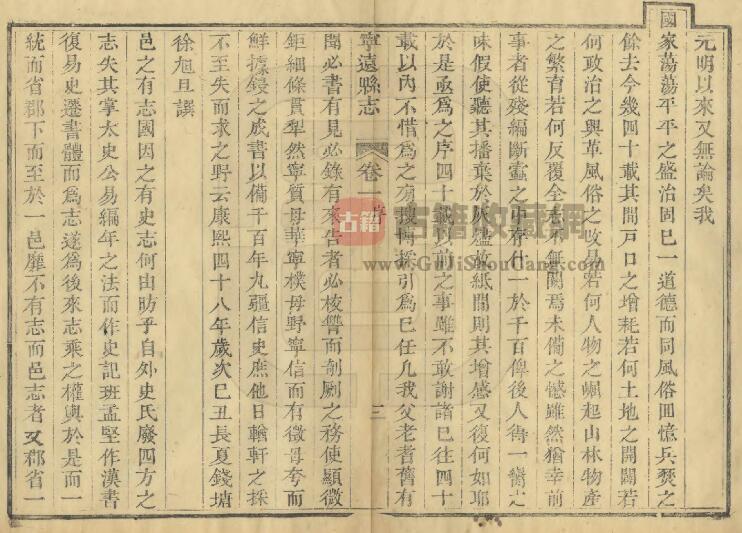 元明以來又無論矣我
國家蕩蕩平平之盛治固已一道德而同風俗回憶兵燹之
餘去今幾四十載其間戸口之增耗若何土地之開闢若
何政治之興革風俗之攺易若何人物之崛起山林物產
之繁育若何反覆全志不無闕焉未備之憾雖然猶幸前
事者從殘編斷蠹之中存什一於千百俾後人得一臠之
味假使聽其播棄於灰燼故紙間則其增感又復何如耶
於是亟為之序四十載以前之事雖不敢謝諸已往四十
載以內不惜為之旁搜博採引為已任凡我父老耆舊有
寧遠縣志 卷一 序 三
聞必書有見必錄有來告者必核讐而剞劂之務使顯微
鉅細條貫犁然寧質毋華寧樸毋野寧信而有徵毋夸而
鮮據錢之成書以備千百年九疆信史庶他日輶軒之採
不至失而求之野云康熙四十八年歲次己丑長夏錢塘
徐旭旦譔
邑之有志國因之有史志何由昉乎自外史氏廢四方之
志失其掌太史公易編年之法而作史記班孟堅作漢書
復易史遷書體而為志遂為後來志乘之權輿於是而一
統而省郡下而至於一邑靡不有志而邑志者又郡省一
古籍
古籍收藏網
www.GuJiShouCang.com